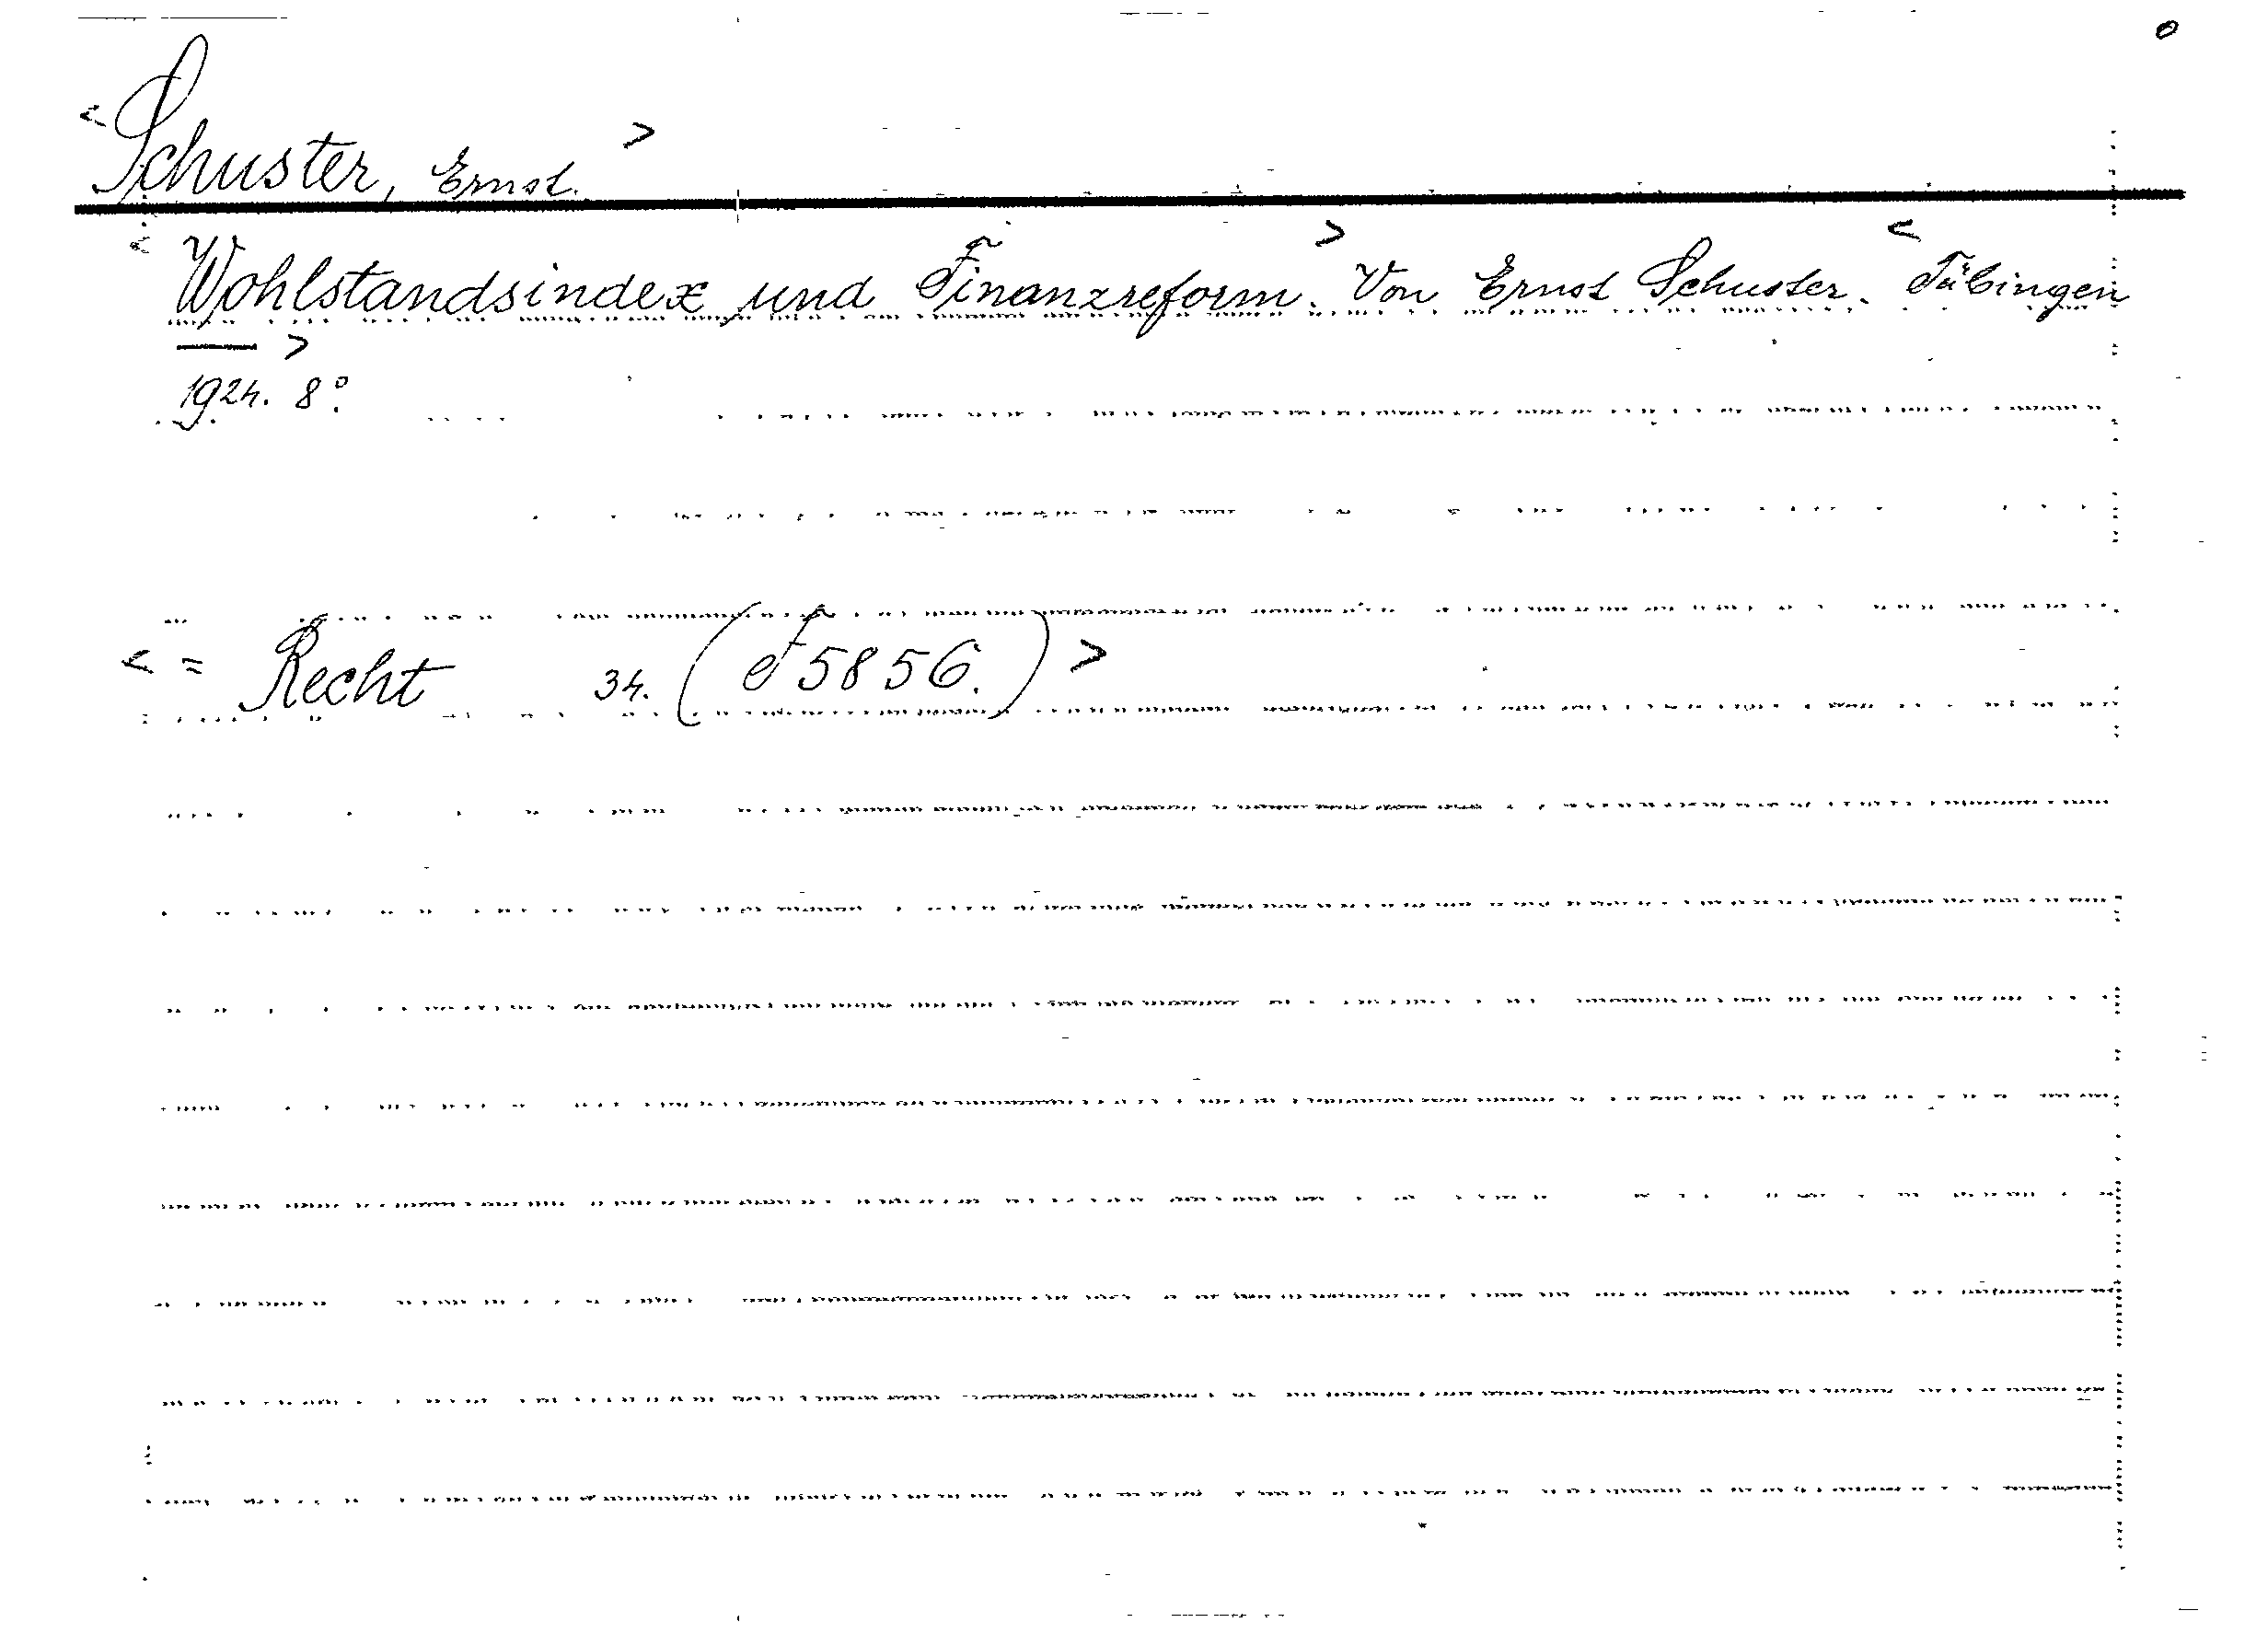 <Schuster, Ernst.>
<Wohlstandsindex und Finanzreform.> Von Ernst Schuster. <Tübingen
1924.> 8°.
<= Recht 34. (F 5856.)>